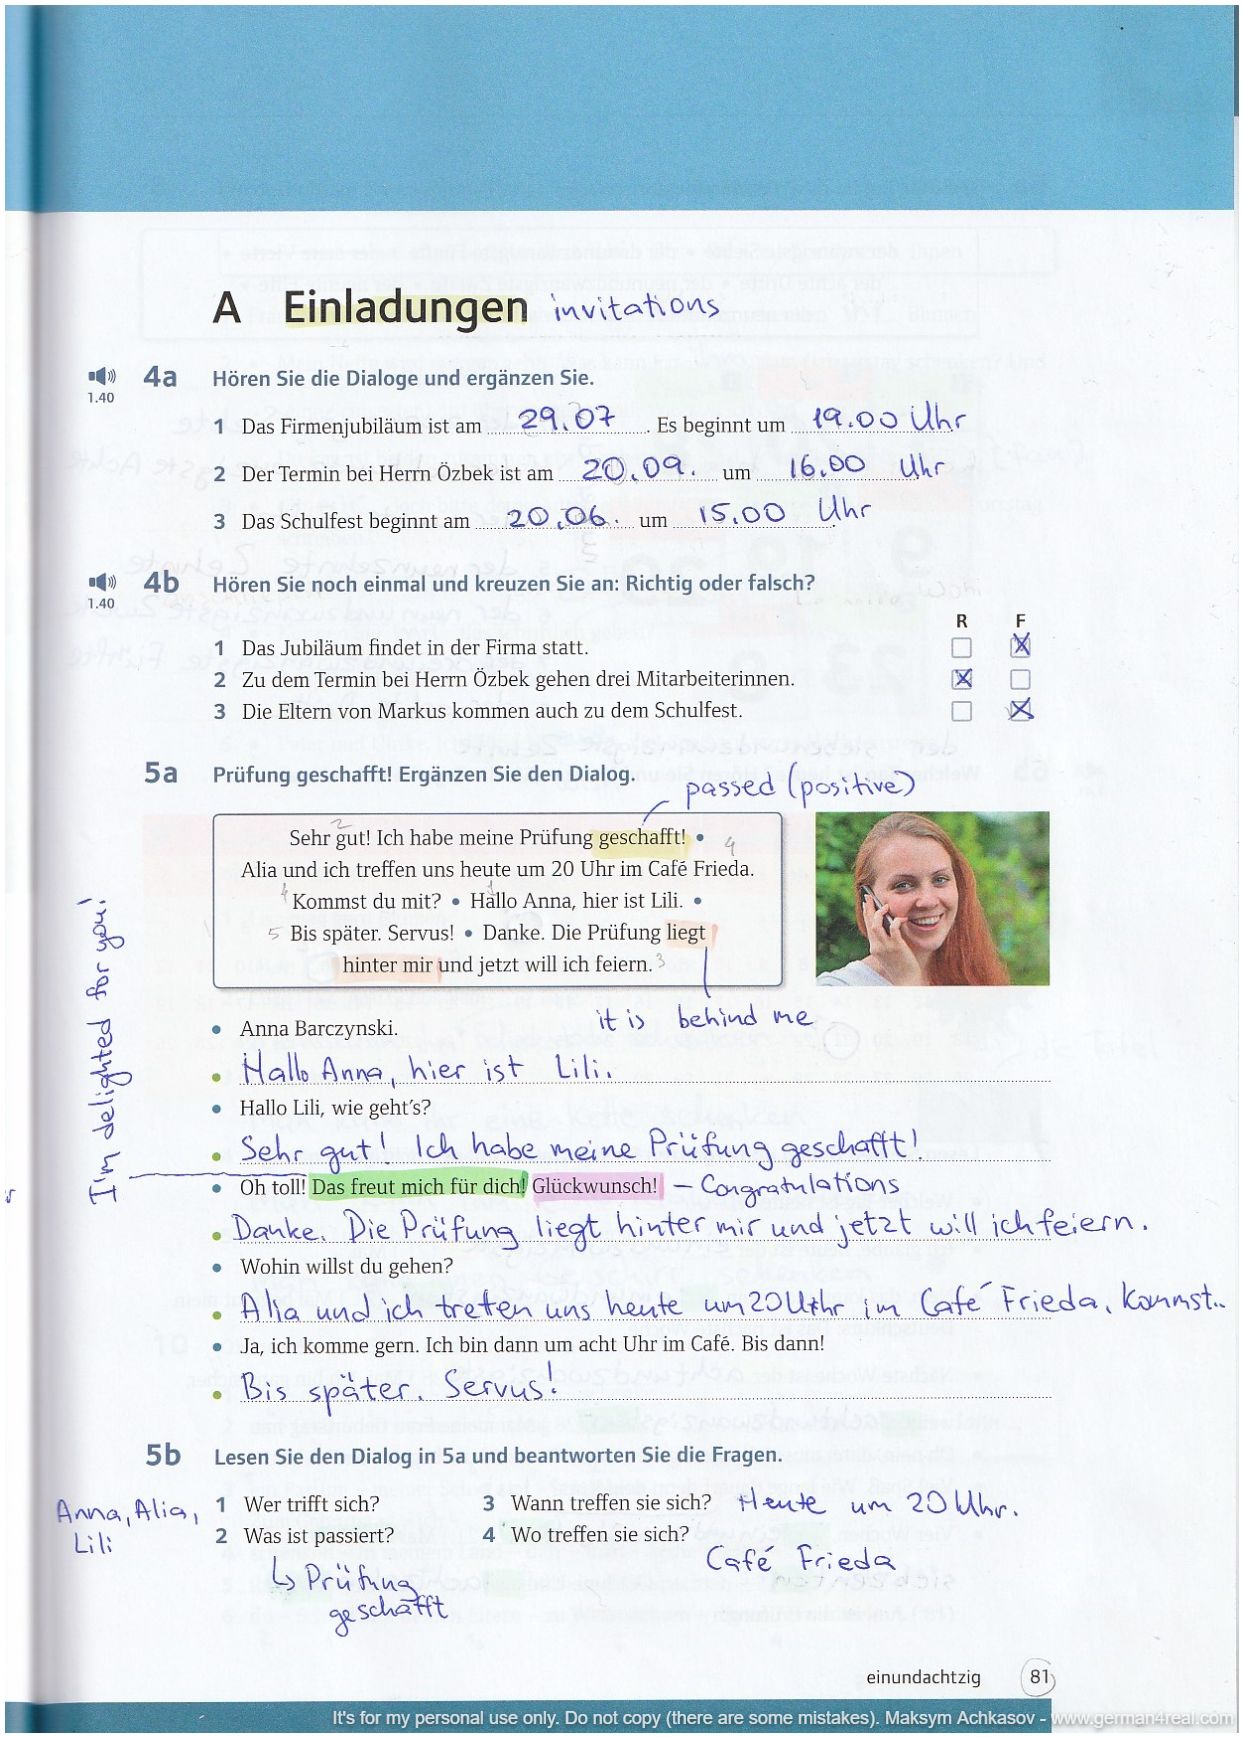 A Einladungen invitations
1.40
4a Hören Sie die Dialoge und ergänzen Sie.
1 Das Firmenjubiläum ist am 29.07. Es beginnt um 19.00 Uhr
2 Der Termin bei Herrn Özbek ist am 20.09. um 16.00 Uhr
3 Das Schulfest beginnt am 20.06. um 15.00 Uhr.
1.40
4b Hören Sie noch einmal und kreuzen Sie an: Richtig oder falsch?
R F
1 Das Jubiläum findet in der Firma statt.
2 Zu dem Termin bei Herrn Özbek gehen drei Mitarbeiterinnen.
3 Die Eltern von Markus kommen auch zu dem Schulfest.
5a Prüfung geschafft! Ergänzen Sie den Dialog.
passed (positive)
2
Sehr gut! Ich habe meine Prüfung geschafft! •
4
Alia und ich treffen uns heute um 20 Uhr im Café Frieda.
4 1
Kommst du mit? • Hallo Anna, hier ist Lili. •
5 Bis später. Servus! • Danke. Die Prüfung liegt
hinter mir und jetzt will ich feiern. 3
it is behind me
I'm delighted for you!
• Anna Barczynski.
• Hallo Anna, hier ist Lili.
• Hallo Lili, wie geht's?
• Sehr gut! Ich habe meine Prüfung geschafft!
• Oh toll! Das freut mich für dich! Glückwunsch! — Congratulations
• Danke. Die Prüfung liegt hinter mir und jetzt will ich feiern.
• Wohin willst du gehen?
• Alia und ich treten uns heute um 20 Uhr im Café Frieda. Kommst..
• Ja, ich komme gern. Ich bin dann um acht Uhr im Café. Bis dann!
• Bis später. Servus!
5b Lesen Sie den Dialog in 5a und beantworten Sie die Fragen.
Anna, Alia,
Lili
1 Wer trifft sich?
2 Was ist passiert?
Prüfung
geschafft
3 Wann treffen sie sich? Heute um 20 Uhr.
4 Wo treffen sie sich?
Café Frieda
einundachtzig 81
It's for my personal use only. Do not copy (there are some mistakes). Maksym Achkasov - www.german4real.com